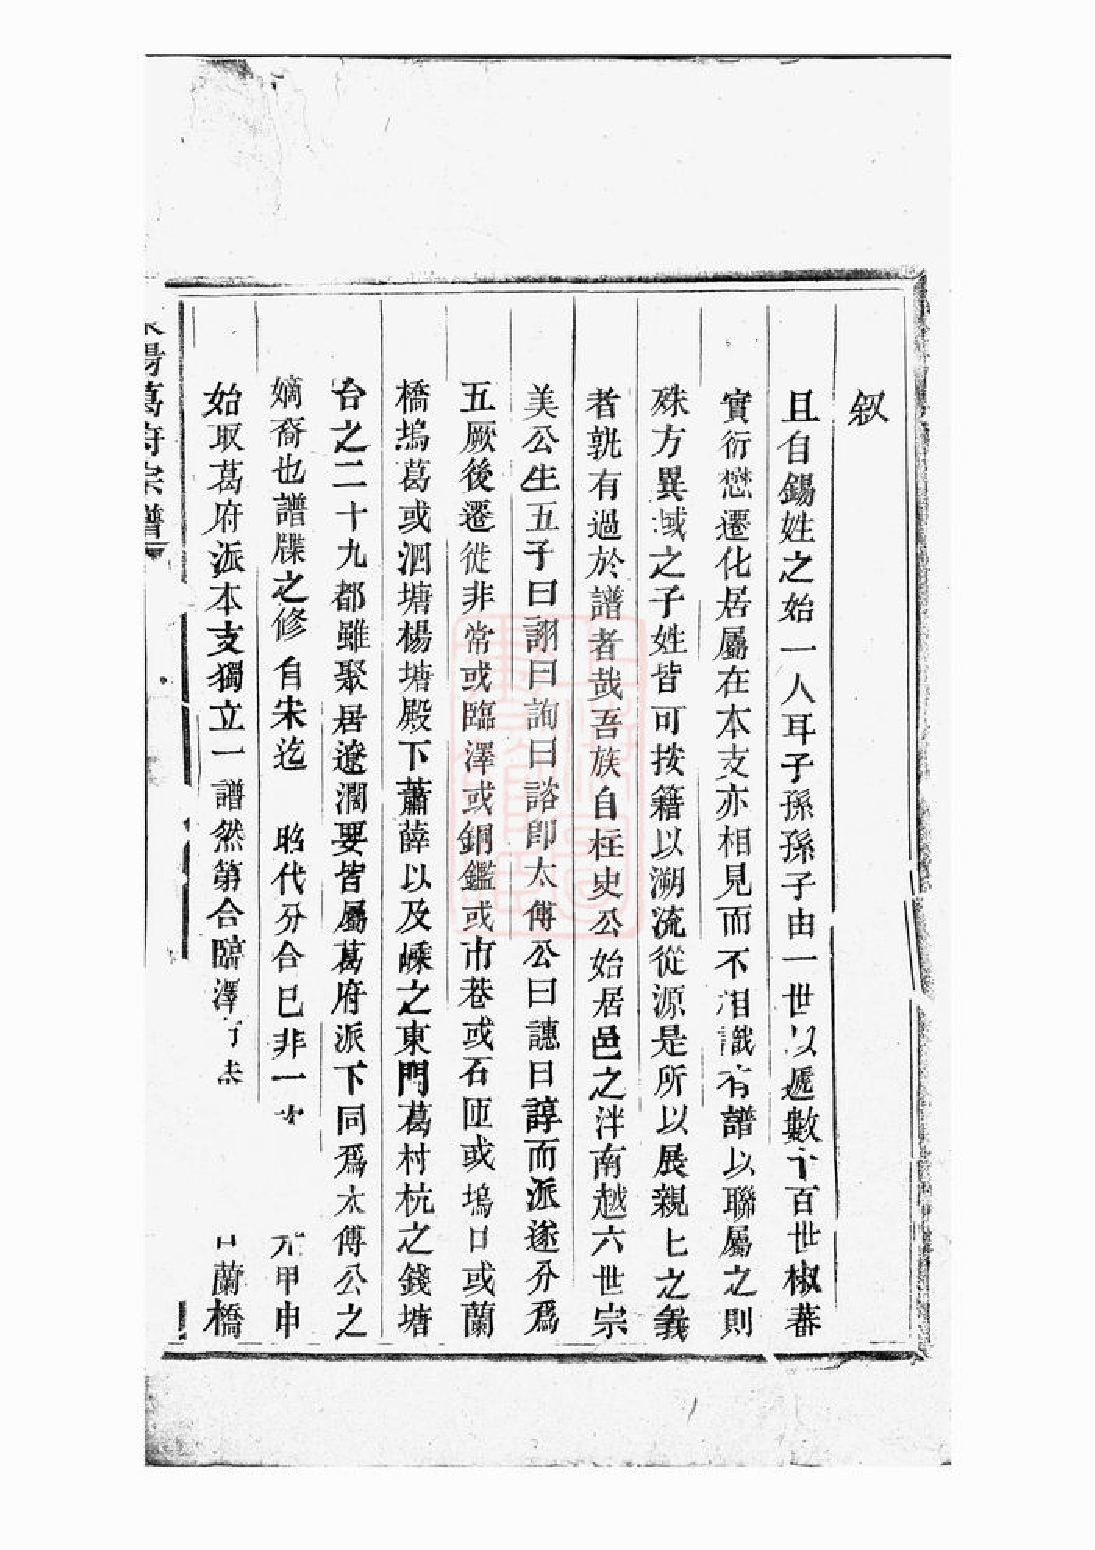 叙
且自錫姓之始一人耳子孫孫子由一世以遞數十百世椒蕃
實衍懋遷化居屬在本支亦相見而不相識有譜以聯屬之則
殊方異域之子姓皆可按籍以溯流從源是所以展親上之義
者孰有過於譜者哉吾族自柱史公始居邑之泮南越六世宗
美公生五子曰詡曰詢曰諮卽太傅公曰譓曰諄而派遂分爲
五厥後遷徙非常或臨澤或銅鑑或市巷或石匝或塢口或蘭
橋塢葛或泗塘楊塘殿下蕭薛以及嵊之東門葛村杭之錢塘
台之二十九都雖聚居遼濶要皆屬葛府派下同爲太傅公之
嫡裔也譜牒之修自宋迄 昭代分合已非一 元甲申
始取葛府派本支獨立一譜然第合臨澤 蘭橋
陽葛府宗譜